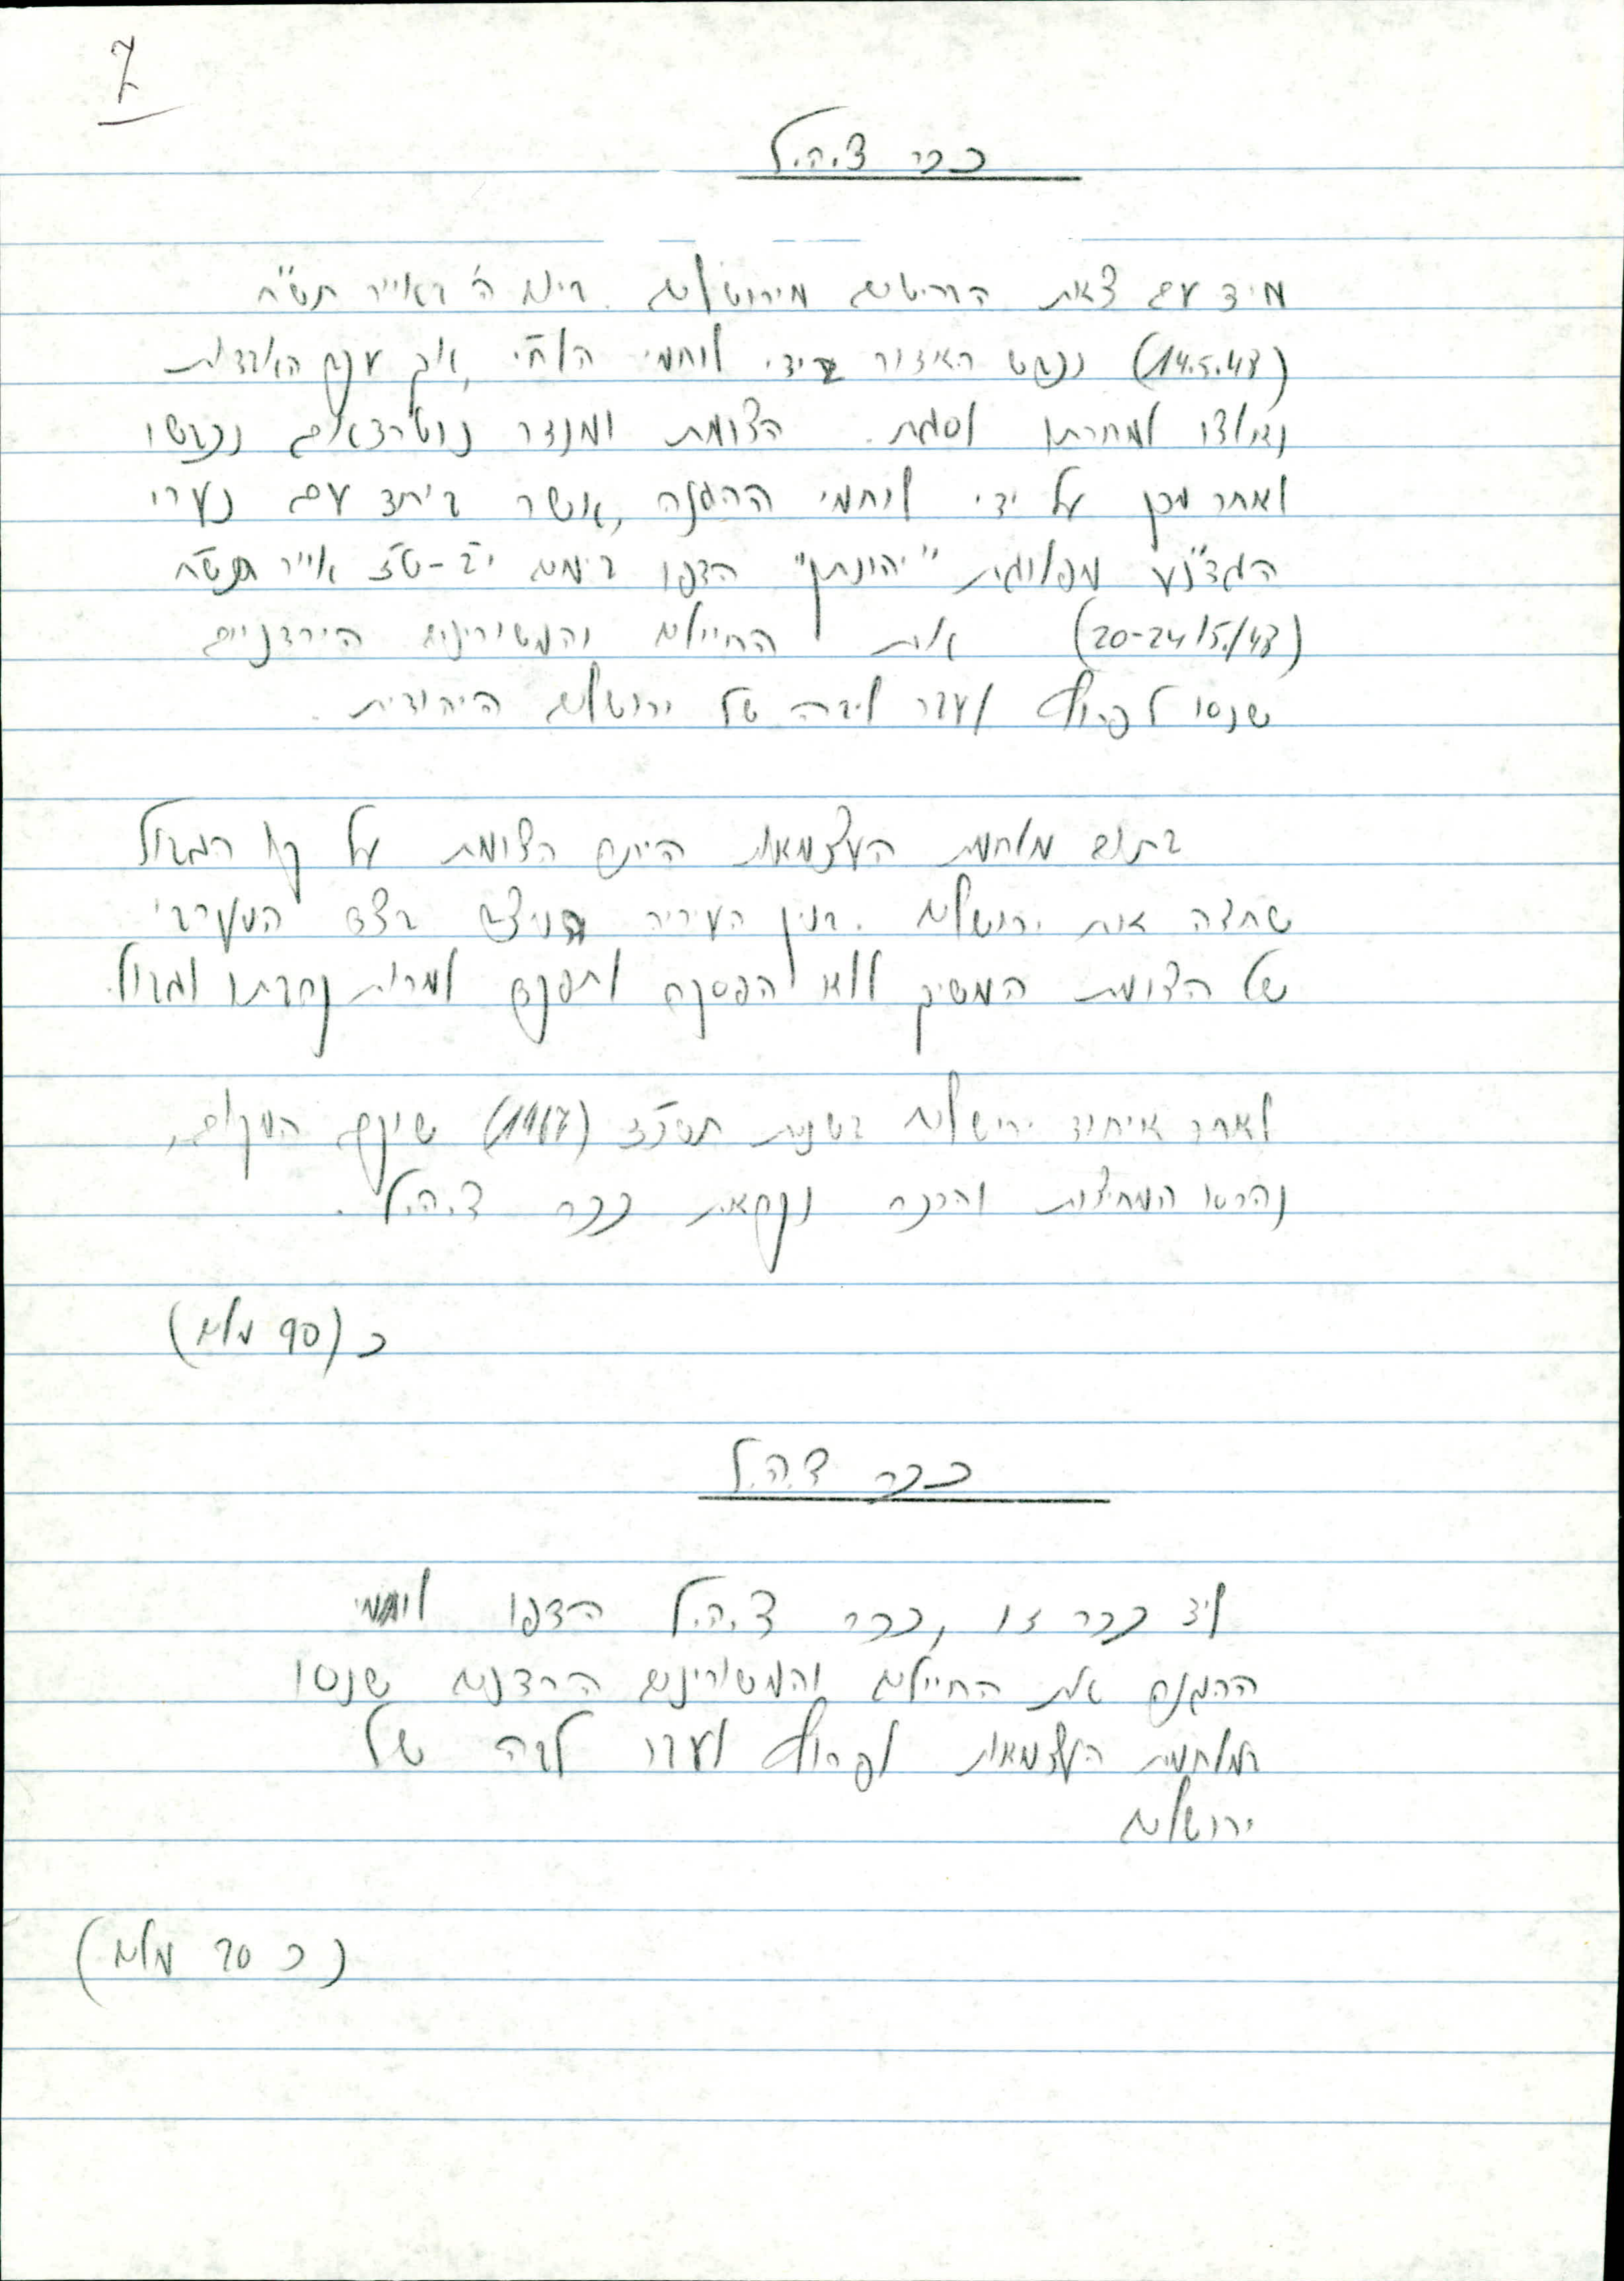 7
ככר צ.ה.ל
מיד עם צאת הבריטים מירושלים. ביום ה' באייר תש"ח
(14.5.48) נכבש האיזור בידי לוחמי הלח"י, אך עקב האבדות
נאלצו למחרתו לסגת. הצומת ומנזר נוטרדאם נכבשו
לאחר מכן על ידי לוחמי ההגנה, אשר ביחד עם נערי
הגדנ"ע מפלוגת "יהונתן" הדפו בימים י"ב-ט"ז אייר תש"ח
(20-24/5/48) את החיילים והמשורינים הירדניים
שנסו לפרוץ לעבר ליבה של ירושלים היהודית.
בתום מלחמת העצמאות היתה הצומת על קו הגבול
שחצה את ירושלים. בנין העיריה הניצב בצד המערבי
של הצומת המשיך ללא הפסקה לתפקד למרות קרבתו לגבול.
לאחר איחוד ירושלים בשנת תשכ"ז (1967) שוקם המקום,
נהרסו המחיצות והככר נקראת ככר צ.ה.ל.
כ (90 מלים)
ככר צ.ה.ל
ליד ככר זו, ככר צ.ה.ל הדפו לוחמי
ההגנה את החיילים והמשורינים הירדנים שנסו
במלחמת העצמאות לפרוץ לעבר לבה של
ירושלים
(כ 20 מלים)